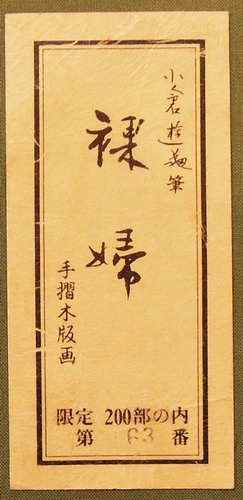 小倉遊亀筆
裸婦
手摺木版画
限定 200部の内
第 63 番